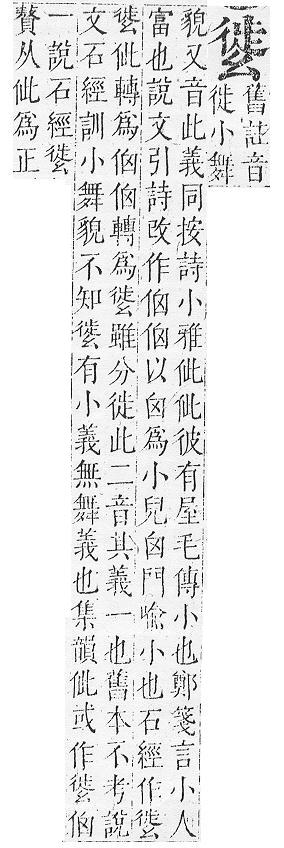 舊註音
徙小舞
貌又音此義同按詩小雅佌佌彼有屋毛傳小也鄭箋言小人
富也說文引詩改作以囟爲小兒囟門喻小也石經作
佌轉爲轉爲雖分徙此二音其義一也舊本不考說
文石經訓小舞貌不知有小義無舞義也集韻佌或作
一說石經
贅从佌爲正